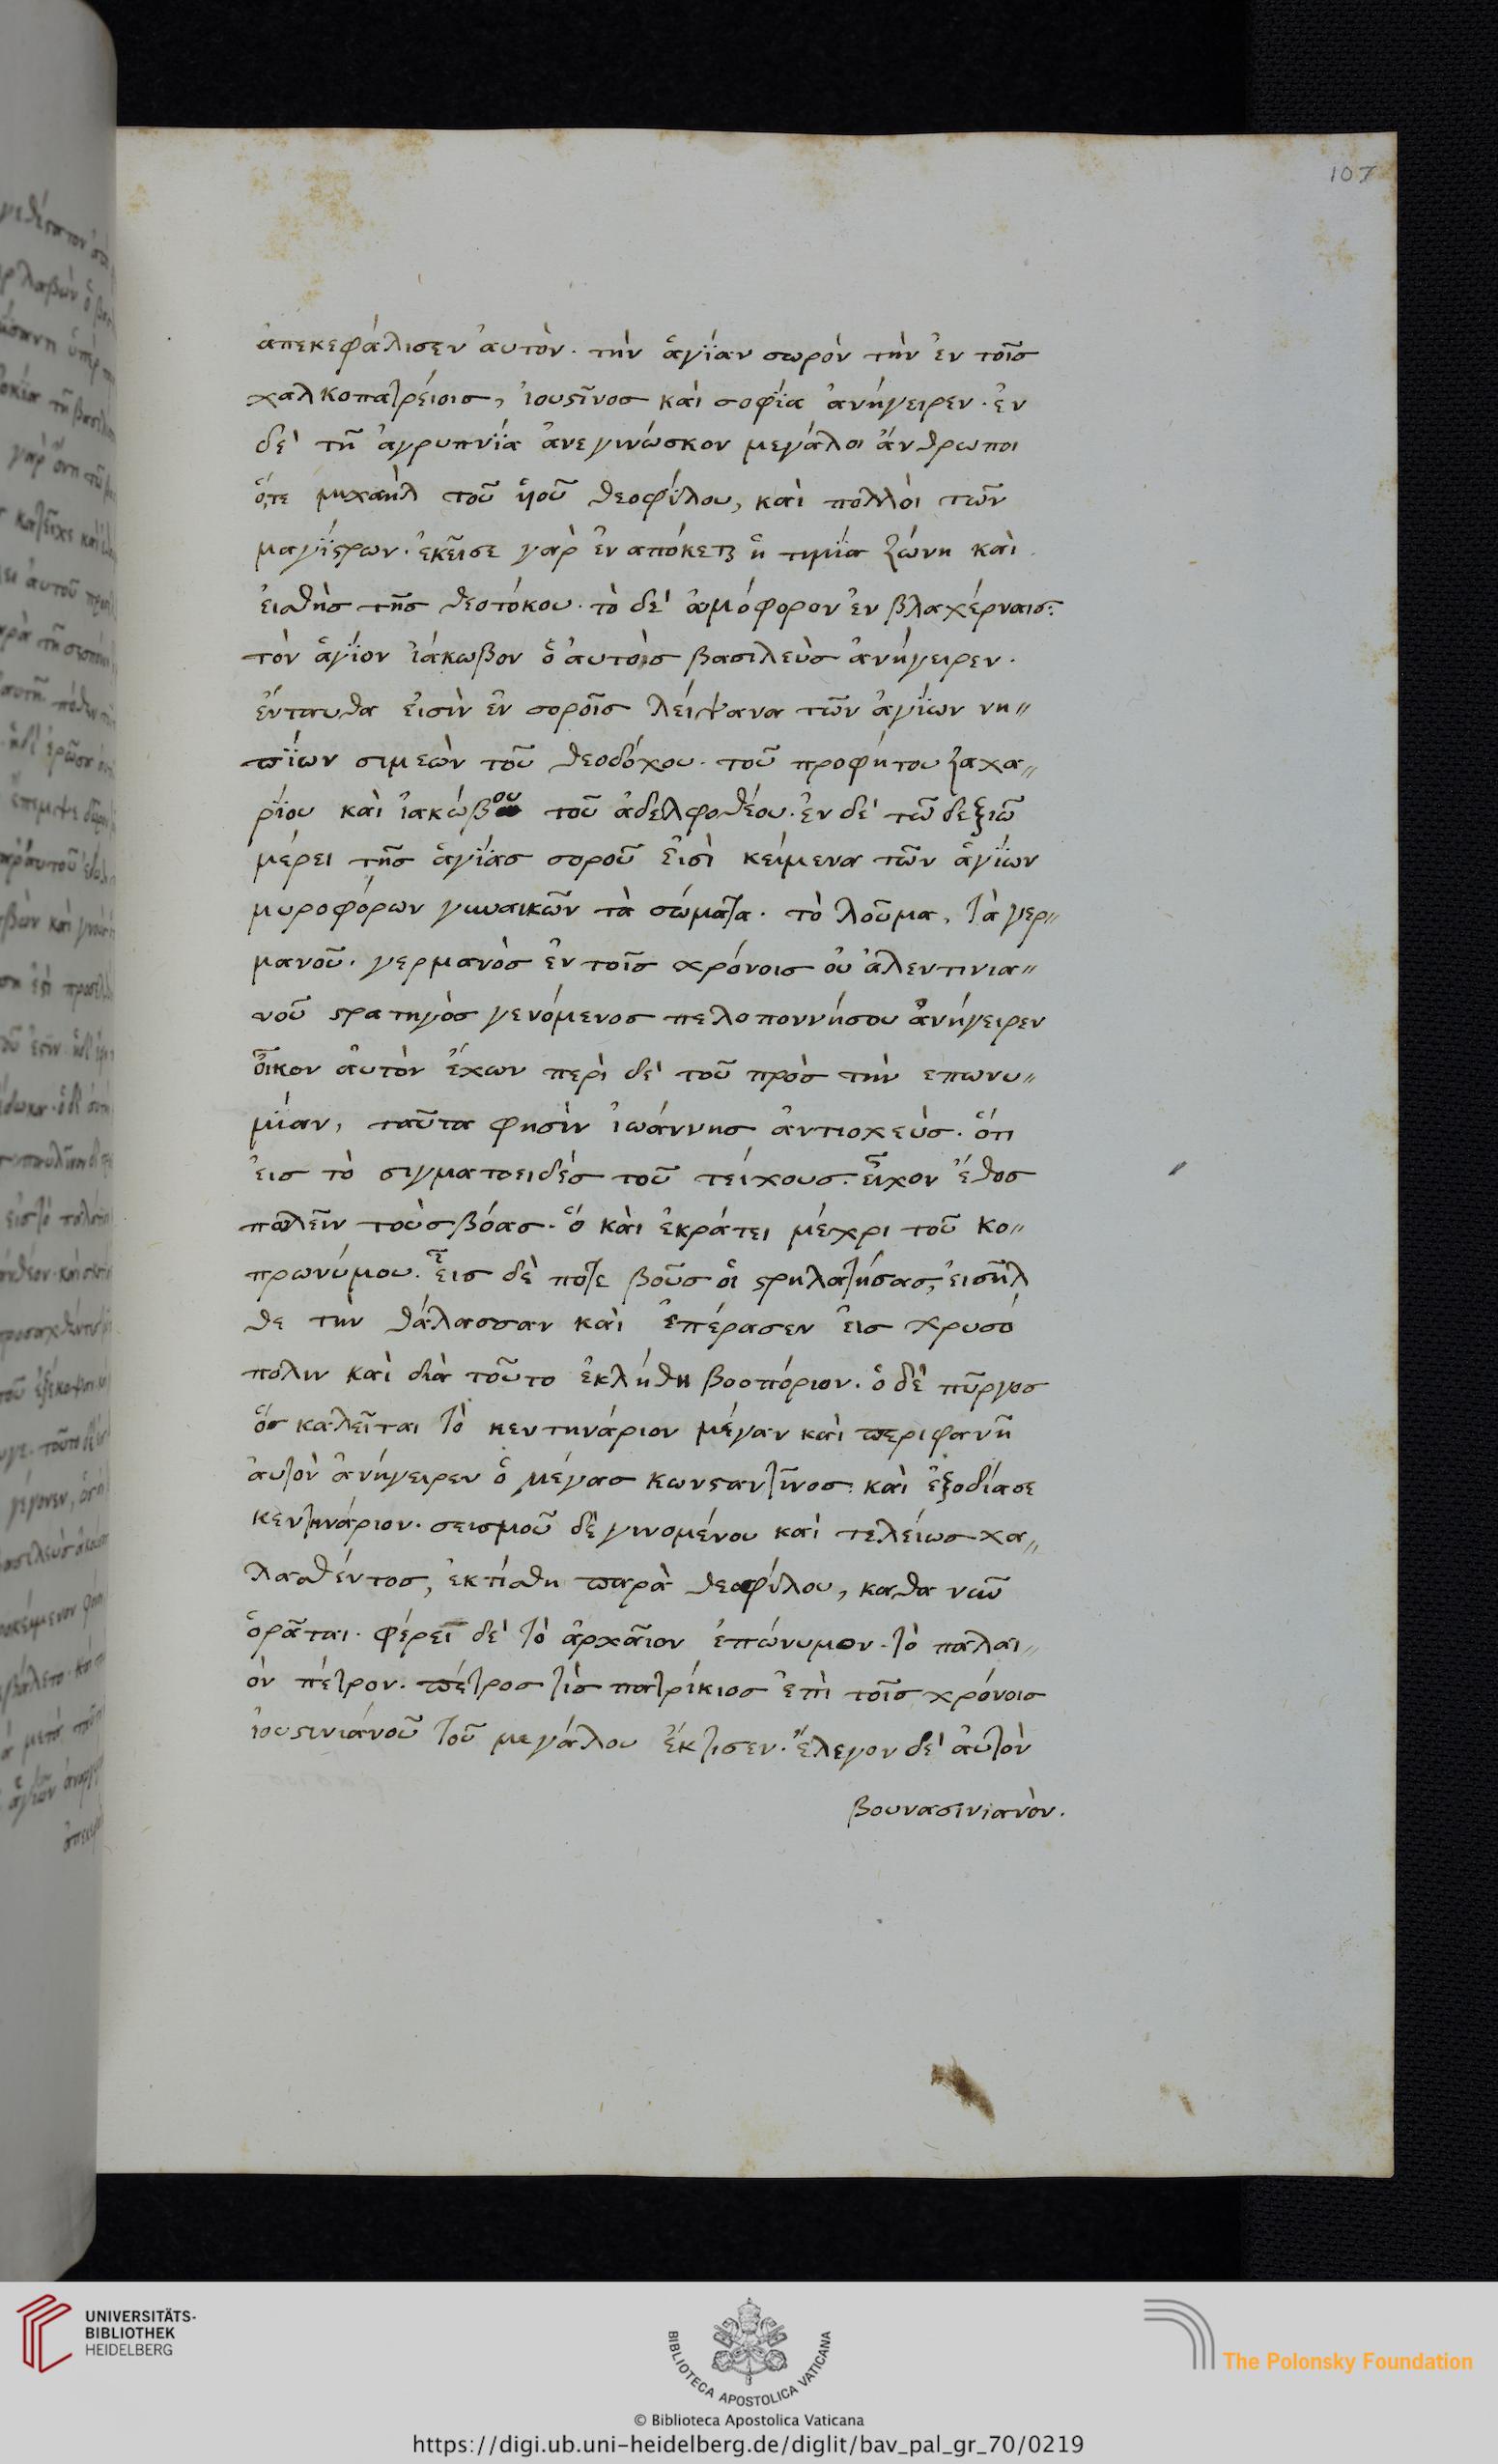 107
ἀπεκεφάλισεν ἀυτὸν. τὴν ἁγΐαν σωρὸν τὴν ἐν τοῖσ
χαλκοπατρείοισ, ἰουςῖνοσ καὶ σοφΐα ἀνήγειρεν. ἐν
δὲ τῆ ἀγρυπνΐα ἀνεγινώσκον μεγάλοι ἄνθρωποι
ὅτε μιχαὴλ τοῦ ὑοῦ θεοφΐλου, καὶ πολλὸι τῶν
μαγΐςρων. ἐκεῖσε γὰρ ἐν απόκειτ ἡ τιμΐα ζώνη καὶ
ἐισθὴσ τῆσ θεοτόκου. τὸ δὲ ὠμόφορον ἐν βλαχέρναισ:
τὸν ἅγΐον ϊάκωβον ὁ ἀυτὸσ βασιλεὺσ ἀνήγειρεν.
ἐνταυθα ἐισὶν ἐν σοροῖσ λείψανα τῶν ἁγΐων νη〃
πΐων σιμεὼν τοῦ θεοδόχου. τοῦ προφήτου ζαχα〃
ρΐου καὶ ϊακώβου τοῦ ἀδελφοθέου. ἐν δὲ τῶ δεξιῶ
μέρει τῆσ ἁγΐασ σοροῦ ἐισὶ κείμενα τῶν ἁγΐων
μυροφόρων γυναικῶν τὰ σώματα. τὸ λοῦμα, τὰ γερ〃
μανοῦ. γερμανὸσ ἐν τοῖσ χρόνοισ ὀυἀλεντινια〃
νοῦ ςρατηγὸσ γενόμενοσ πελοποννήσου ἀνήγειρεν
ὅικον ἀυτὸν ἔχων περὶ δὲ τοῦ πρὸσ τὴν επωνυ〃
μΐαν, ταῦτα φησὶν ἰωάννησ ἀντιοχεὺσ. ὅτι
ἐισ τὸ σιγματοειδὲσ τοῦ τείχουσ. εἶχον ἔθοσ
πωλεῖν τοὺσ βόασ. ὃ κὰι ἐκράτει μέχρι τοῦ κο〃
πρωνύμου. εἷισ δὲ ποτε βοῦσ ὁι ςρηλατήσασ, ἐισῆλ
θε τὴν θάλασσαν καὶ ἐπέρασεν ἐισ χρυσό
πολιν καὶ διὰ τοῦτο ἐκλήθη βοοπόριον. ὁ δὲ πῦργοσ
ὅσ καλεῖται τὸ κεντηνάριον μέγαν καὶ περιφανῆ
ἀυτὸν ἀνήγειρεν ὁ μέγασ κωνςαντῖνοσ. καὶ ἐξοδίασε
κεντηνάριον. σεισμοῦ δὲ γινομένου καὶ τελείωσ χα〃
λασθέντοσ, ἐκτίσθη παρὰ θεοφίλου, καθα νῦν
ὁρᾶται. φέρει δὲ τὸ ἀρχᾶιον ἐπώνυμον. τὸ παλαι〃
ὸν πέτρον. πέτροσ τὶσ πατρίκιοσ ἐπὶ τοῖσ χρόνοισ
ἰουςινιάνοῦ τοῦ μεγάλου ἔκτισεν. ἔλεγον δὲ ἀυτὸν
βουνασινιανὸν.
UNIVERSITÄTS-
BIBLIOTHEK
HEIDELBERG
BIBLIOTECA APOSTOLICA VATICANA
The Polonsky Foundation
© Biblioteca Apostolica Vaticana
https://digi.ub.uni-heidelberg.de/diglit/bav_pal_gr_70/0219